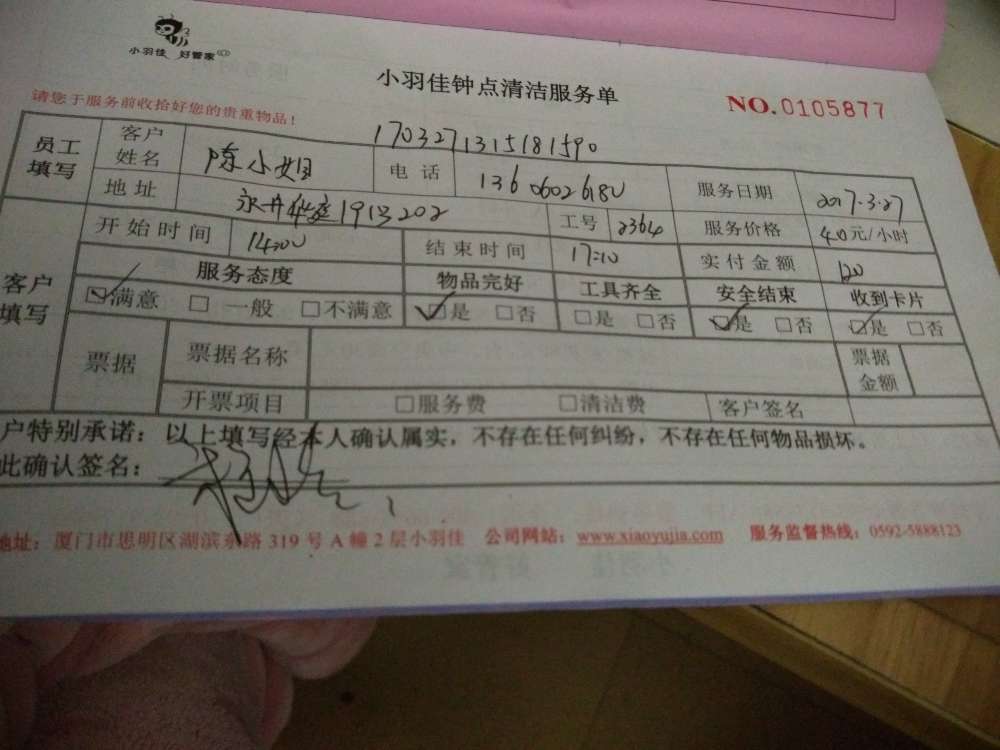 小羽佳 好管家
小羽佳钟点清洁服务单
NO.0105877
请您于服务前收拾好您的贵重物品！
1703271315181590
员工填写 客户姓名 陈小姐 电话 服务日期 2017.3.27
地址 19 202 工号 2364 服务价格 40元/小时
客户填写 开始时间 14:00 结束时间 17:10 实付金额 120
服务态度 物品完好 工具齐全 安全结束 收到卡片
☑满意 □一般 □不满意 ☑是 □否 □是 □否 ☑是 □否 ☑是 □否
票据 票据名称 票据金额
开票项目 □服务费 □清洁费 客户签名
户特别承诺：以上填写经本人确认属实，不存在任何纠纷，不存在任何物品损坏。
此确认签名：
地址：厦门市思明区湖滨东路 319 号 A 幢 2 层小羽佳 公司网站：www.xiaoyujia.com 服务监督热线：0592-5888123